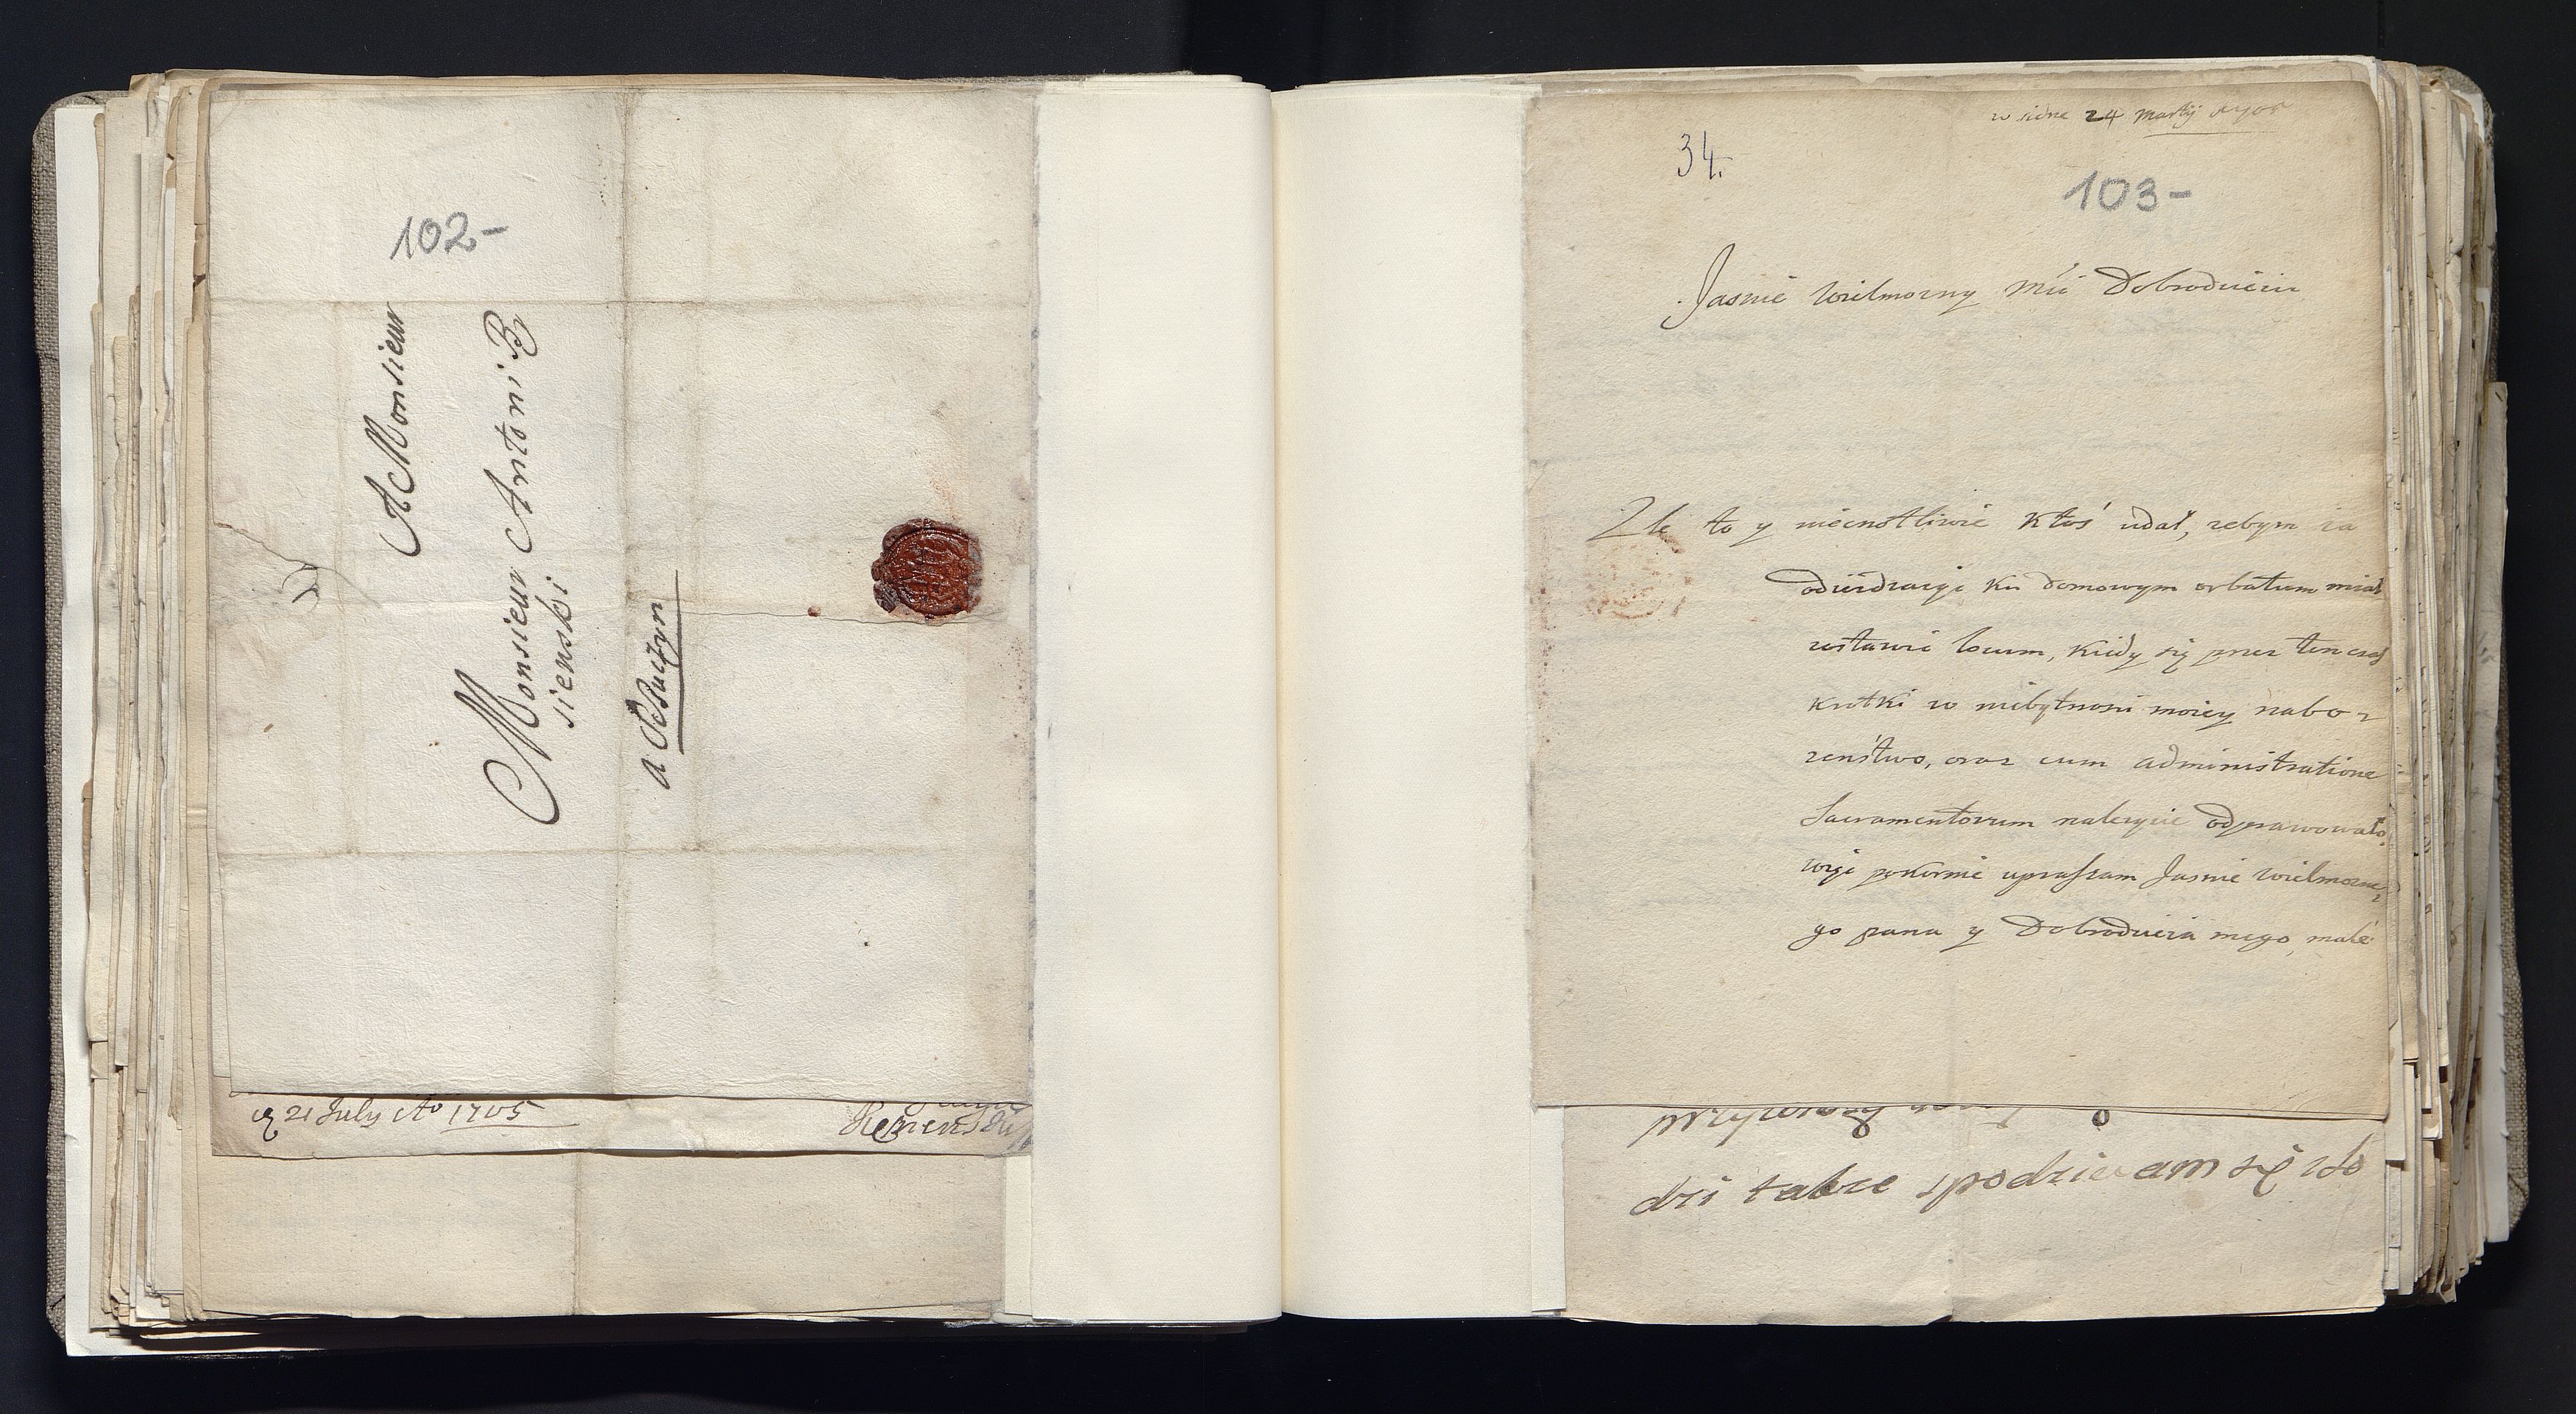 102-
A Monsieur
Monsieur Antoni B
sienski
a
21 July Ao 1705
24 Martij
34.
103-
Jasnie wielmozny Mći Dobrodzieiu
Zle to y niecnotliwie Ktoś udał, zebym ia
odieżdzaiąc ku domowym orbatum miał
zostawić locum, Kiedy się przez ten czas
krotki w niebytnosci moiey nabo-
zeństwo, oraz cum administratione
Sacramentorum nalezycie odprawowało,
więc pokornie upraszam Jasnie wielmozne-
go pana y Dobrodzieia mego, male
dzi takze spodziewam się